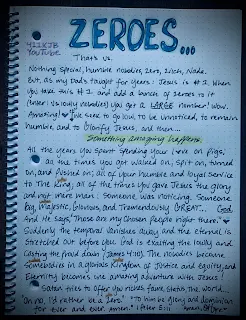 411XJB
YouTube
ZEROES...
That's us.
Nothing special, humble nobodies, Zero, Zilch, Nada.
But, as my Dad's taught for years: Jesus is #1. When
you take this #1 and add a bunch of zeroes to it
(enter: us lowly nobodies) you get a LARGE number! Wow.
Amazing! We seek to go low, to be unnoticed, to remain
humble, and to Glorify Jesus, and then...
Something amazing happens.
All the years you spent spending your love on pigs,
all the times you got walked on, spit on, turned
on, and hushed on; all of your humble and loyal service
to The King; all of the times you gave Jesus the glory
and not mere men: Someone was noticing. Someone
Big, Majestic, Glorious, and Tremendously GREAT... God.
And He says, "Those are my chosen people right there."
Suddenly the temporal vanishes away and the eternal is
stretched out before you. God is exalting the lowly and
casting the proud down (James 4:10). The nobodies become
somebodies in a glorious Kingdom of Justice and equity and
Eternity becomes one amazing adventure with Jesus!
Satan tries to offer you riches, fame, status, the world...
Oh no, I'd rather be a Zero. "To him be glory and dominion
for ever and ever. Amen." 1 Peter 5:11